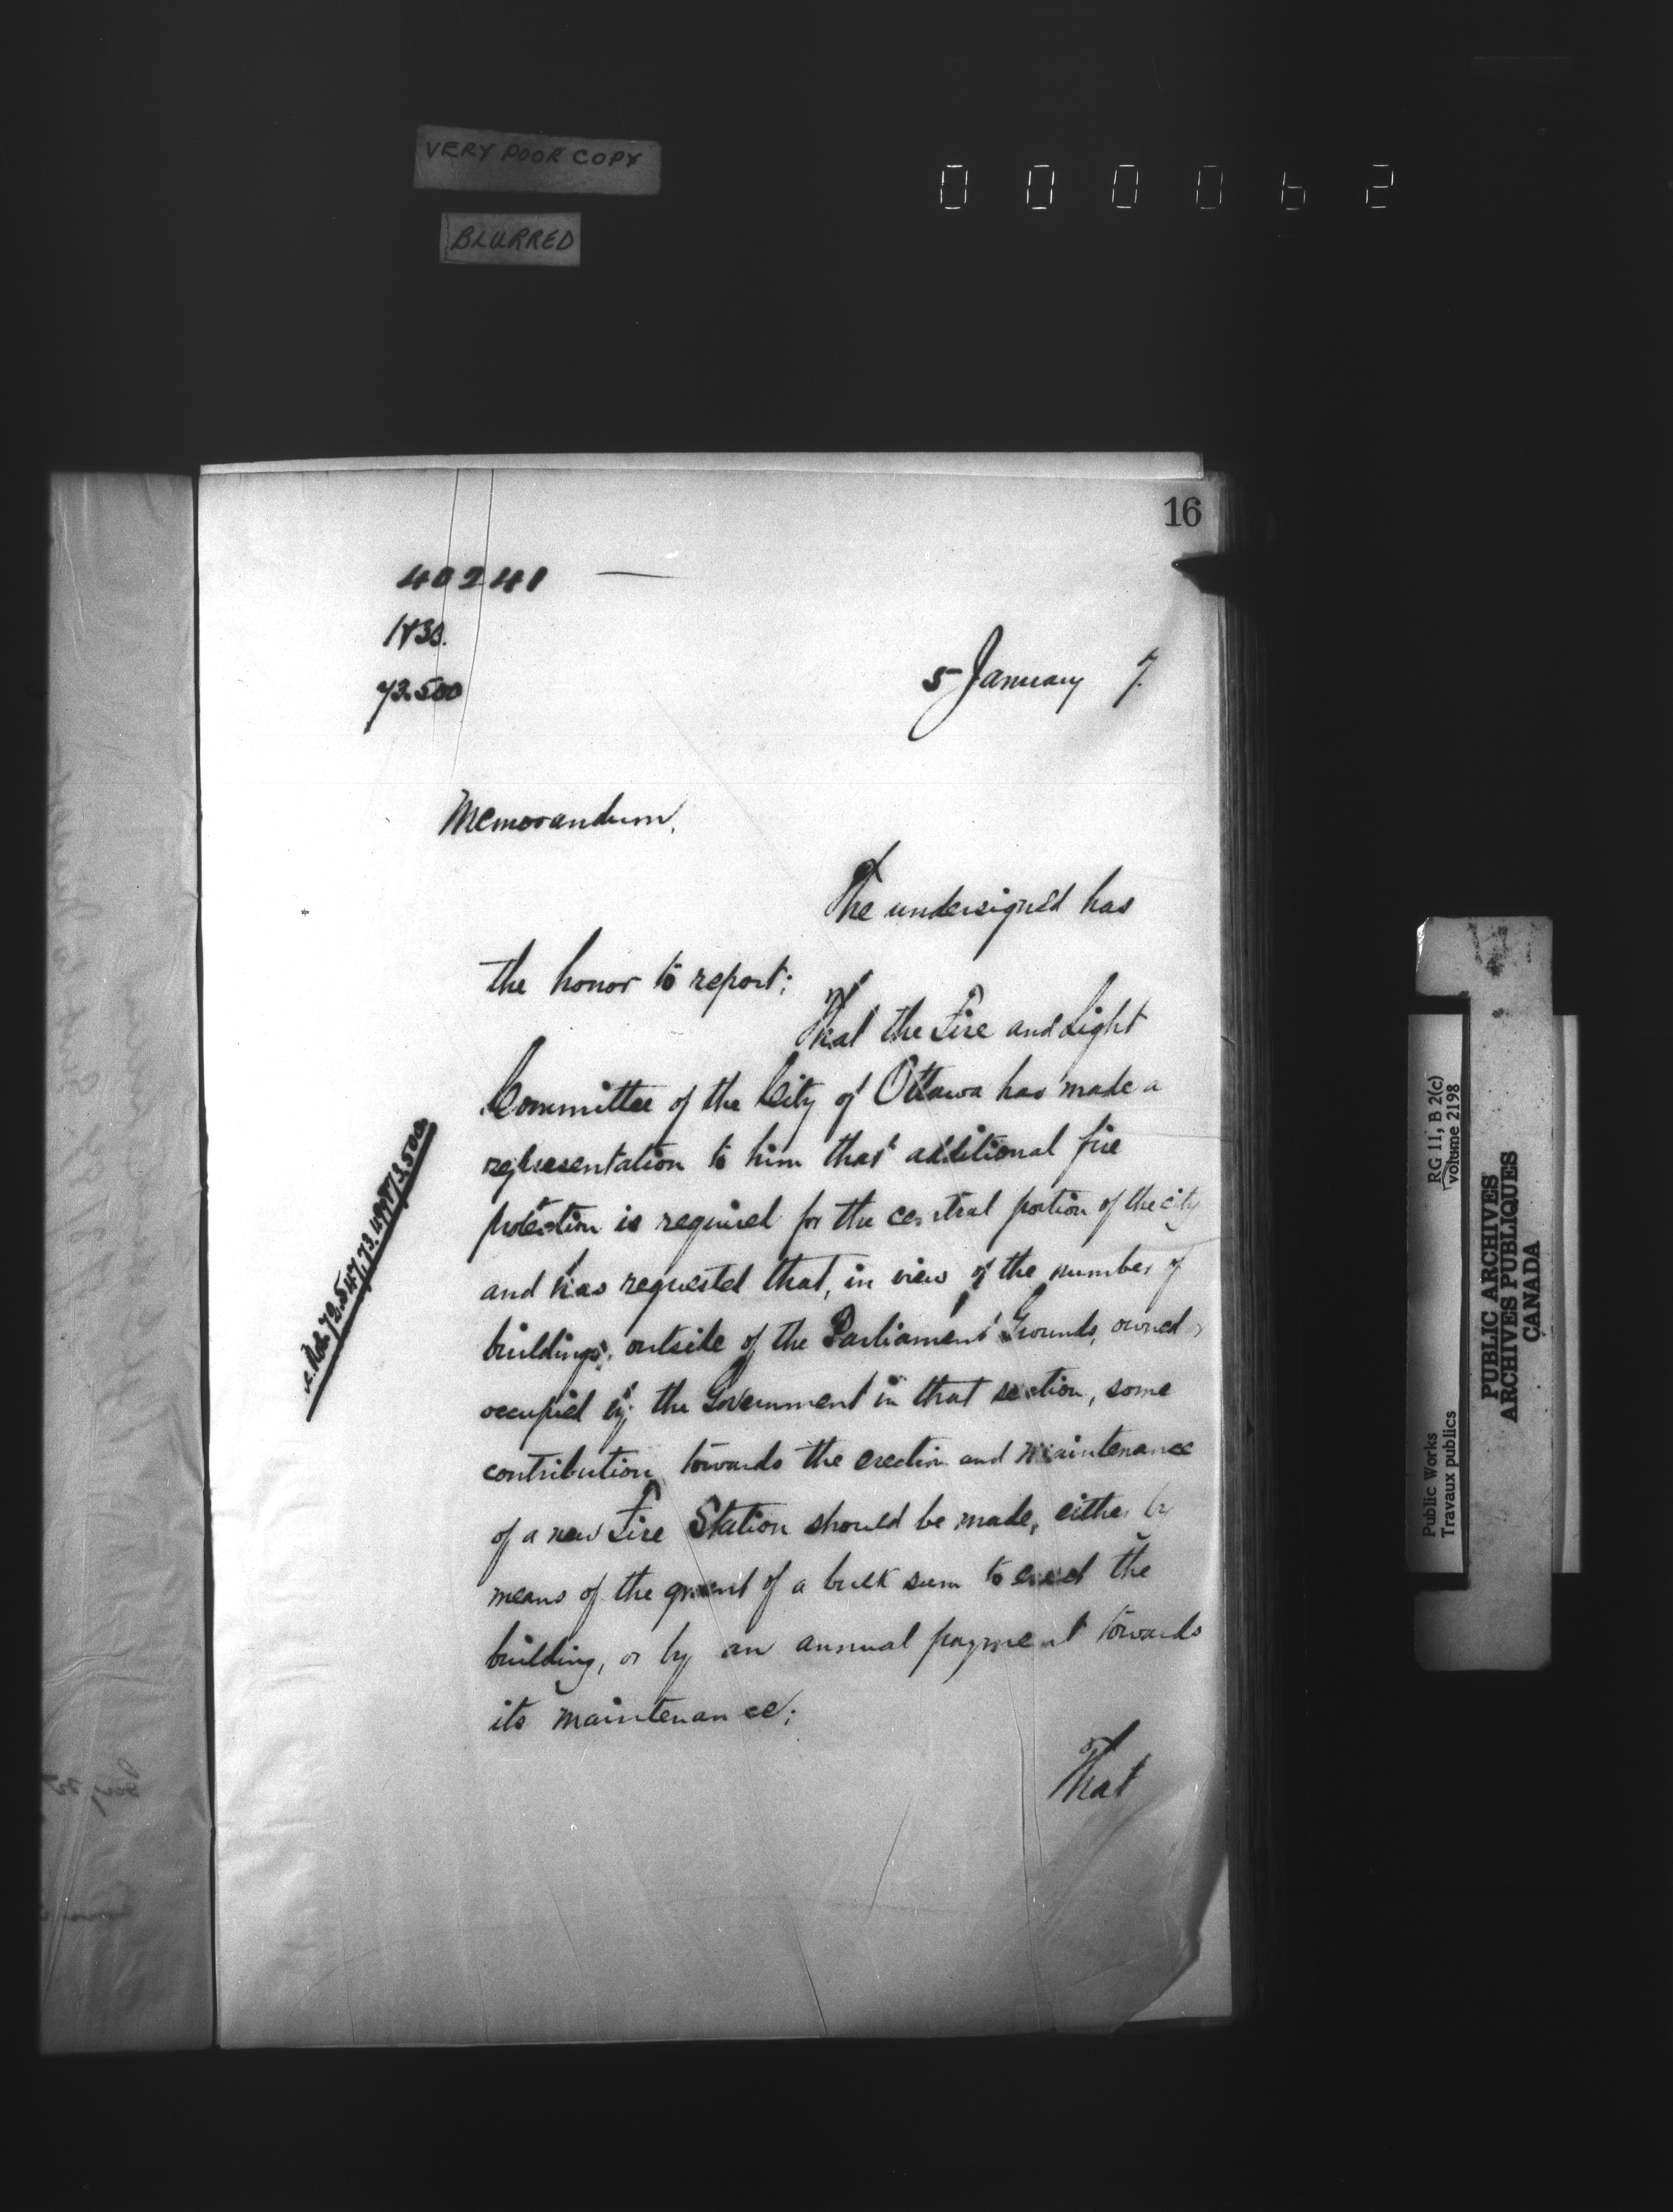 VERY POOR COPY
BLURRED
000062
16
40241
1830.
73.500
5 January 7.
Memorandum.
The undersigned has
the honor to report:
That the Fire and Light
Committee of the City of Ottawa has made a
representation to him that additional fire
protection is required for the central portion of the city
and has requested that, in view of the number of
buildings, outside of the Parliament Grounds, owned or
occupied by the Government in that section, some
contribution towards the erection and maintenance
of a new Fire Station should be made, either by
means of the grant of a bulk sum to erect the
building, or by an annual payment towards
its maintenance;
That
Public Works
Travaux publics
RG 11, B 2(c)
volume 2198
PUBLIC ARCHIVES
ARCHIVES PUBLIQUES
CANADA